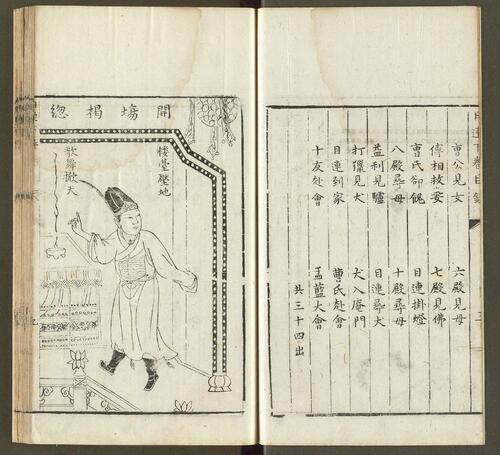 曹公見女 六殿見母
傅相救妻 七殿見佛
曹氏卻饋 目連掛燈
八殿尋母 十殿尋母
益利見驢 目連尋犬
打獵見犬 犬入庵門
目連到家 曹氏赴會
十友赴會 盂蘭大會
共三十四出
開場揭總
楼臺壓地
歌聲掀天